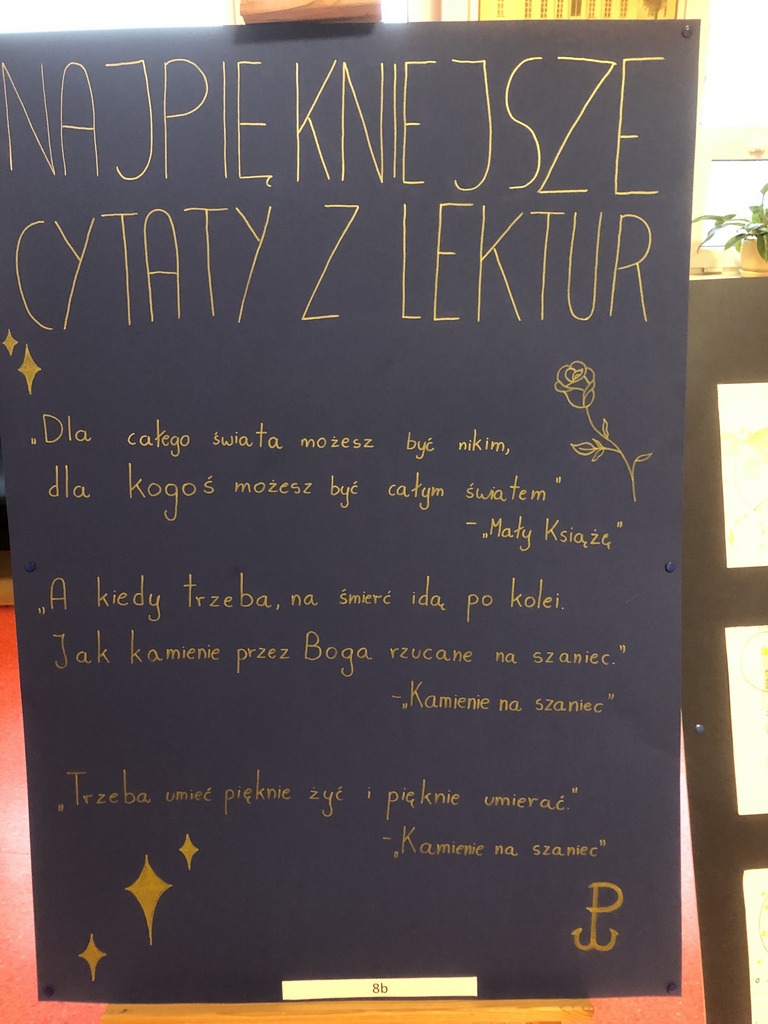 NAJPIĘKNIEJSZE
CYTATY Z LEKTUR
„Dla całego świata możesz być nikim,
dla kogoś możesz być całym światem"
-„Mały Książę"
„A kiedy trzeba, na śmierć idą po kolei.
Jak kamienie przez Boga rzucane na szaniec."
-„Kamienie na szaniec"
„Trzeba umieć pięknie żyć i pięknie umierać."
-„Kamienie na szaniec"
8b